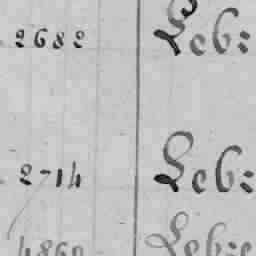 2682 Leb:
2714 Leb:
4860 Leb:e